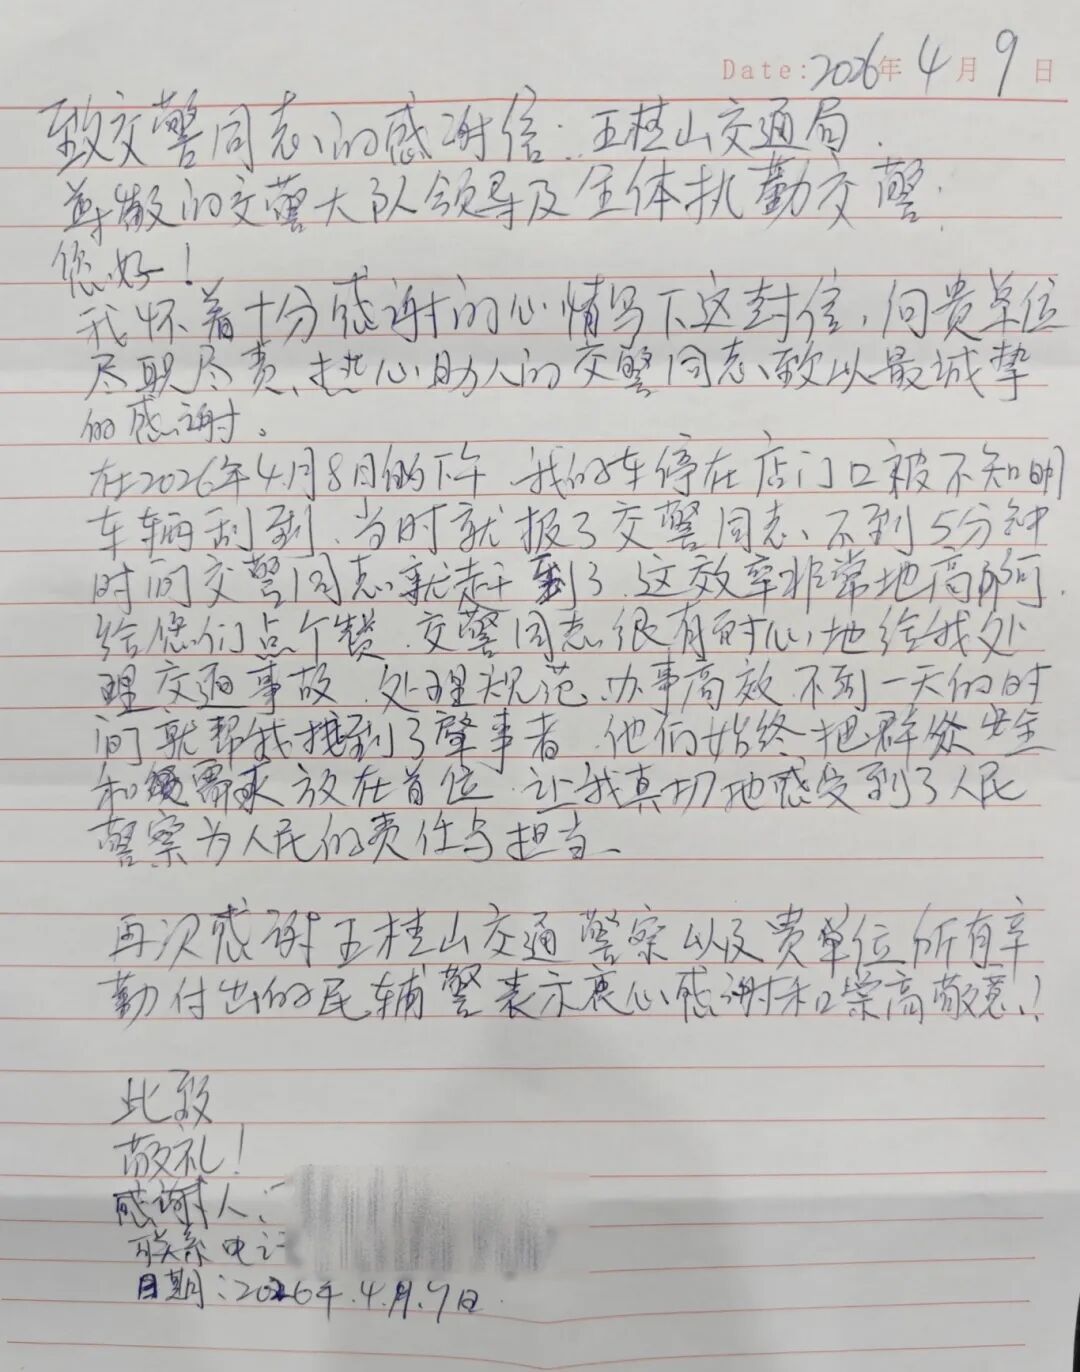 Date: 2026年4月9日
致交警同志的感谢信：五桂山交通局.
尊敬的交警大队领导及全体执勤交警：
您好！
我怀着十分感谢的心情写下这封信，向贵单位
尽职尽责、热心助人的交警同志、致以最诚挚
的感谢。
在2026年4月8日的下午.我的车停在店门口被不知明
车辆刮到.当时就报了交警同志、不到5分钟
时间交警同志就赶到了.这效率非常地高啊.
给您们点个赞.交警同志很有耐心地给我处
理交通事故.处理规范.办事高效.不到一天的时
间就帮我找到了肇事者.他们始终把群众安全
和需求放在首位.让我真切地感受到了人民
警察为人民的责任与担当.
再次感谢五桂山交通警察以及贵单位所有辛
勤付出的民辅警表示衷心感谢和崇高敬意！
此致
敬礼！
感谢人：
联系电
日期：2026年.4.月.9日.